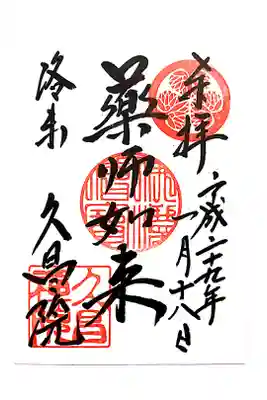 奉拝
平成二十九年
一月十八日
薬師如来
洛東
久昌院